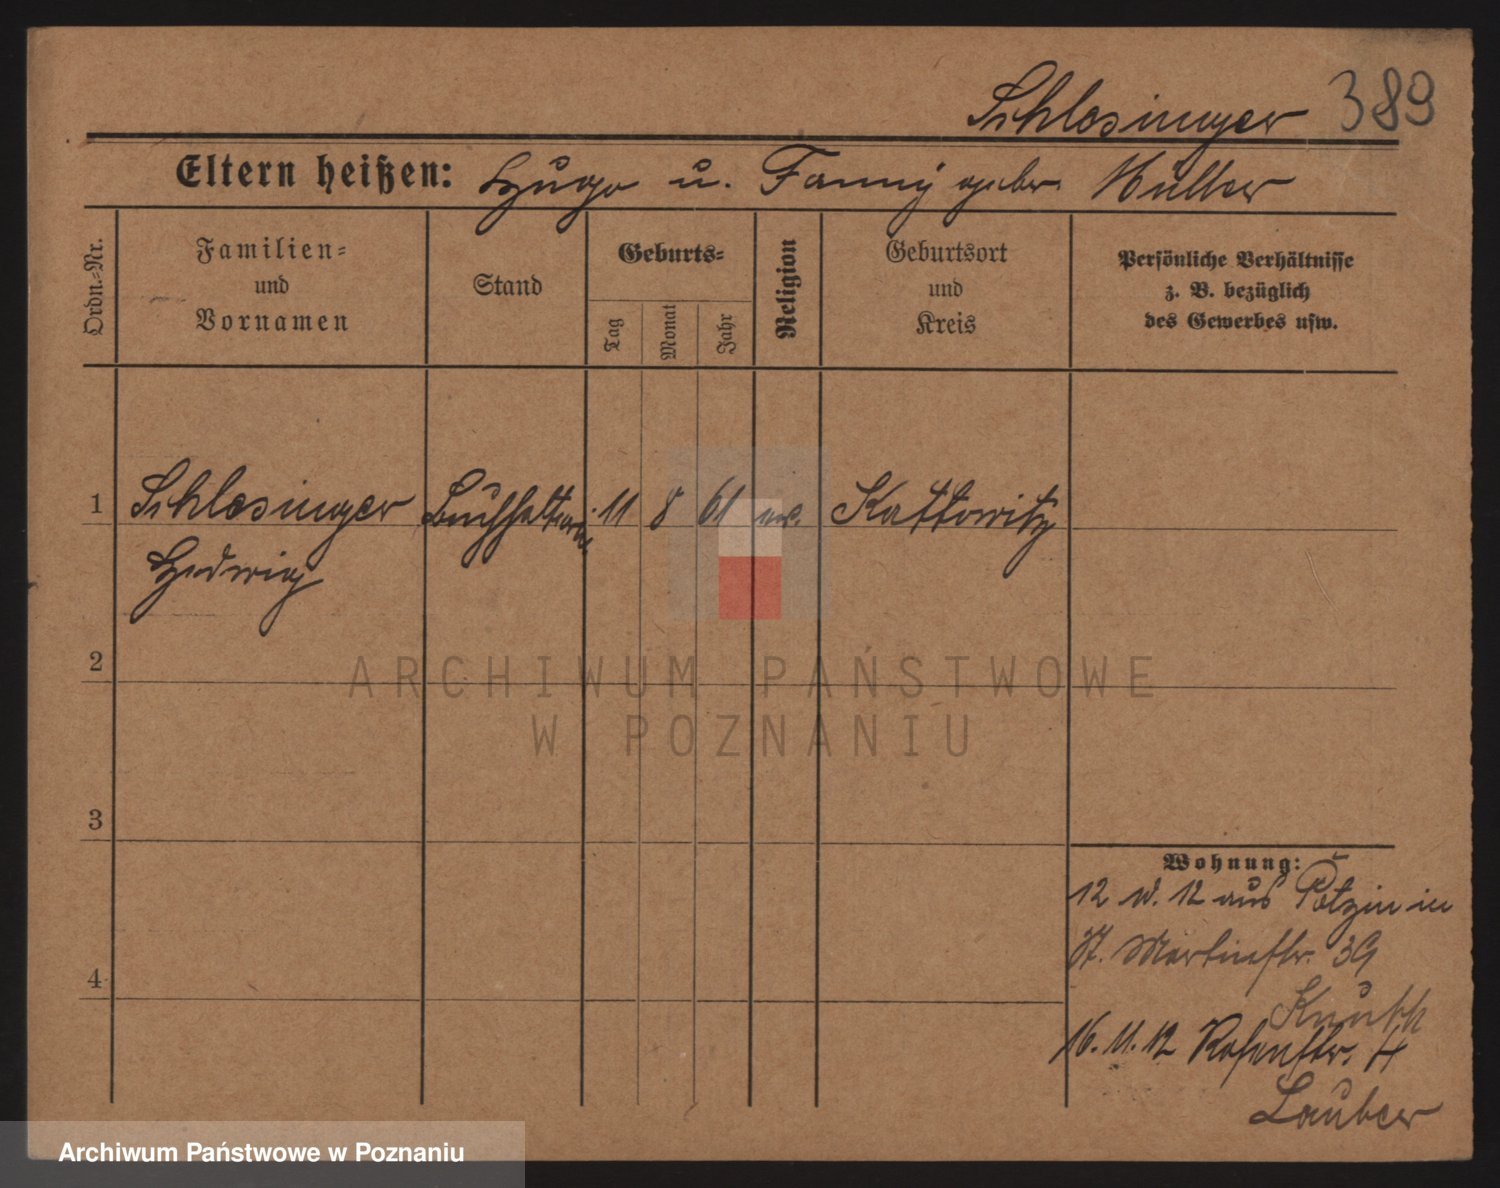 Schlesinger 389
Eltern heißen: Hugo u. Fanny gebr. Müller
Ordn.-Nr.
Familien-
und
Vornamen
Stand
Geburts-
Tag
Monat
Jahr
Religion
Geburtsort
und
Kreis
Persönliche Verhältnisse
z. B. bezüglich
des Gewerbes usw.
1 Schlesinger Buchhalterin 11 8 61 ev. Kattowitz
Hedwig
2
3
4
Wohnung:
12 12 aus in
St. Martinstr. 39
16. 11. 12 Rosenstr.
Lauber
ARCHIWUM PAŃSTWOWE
W POZNANIU
Archiwum Państwowe w Poznaniu